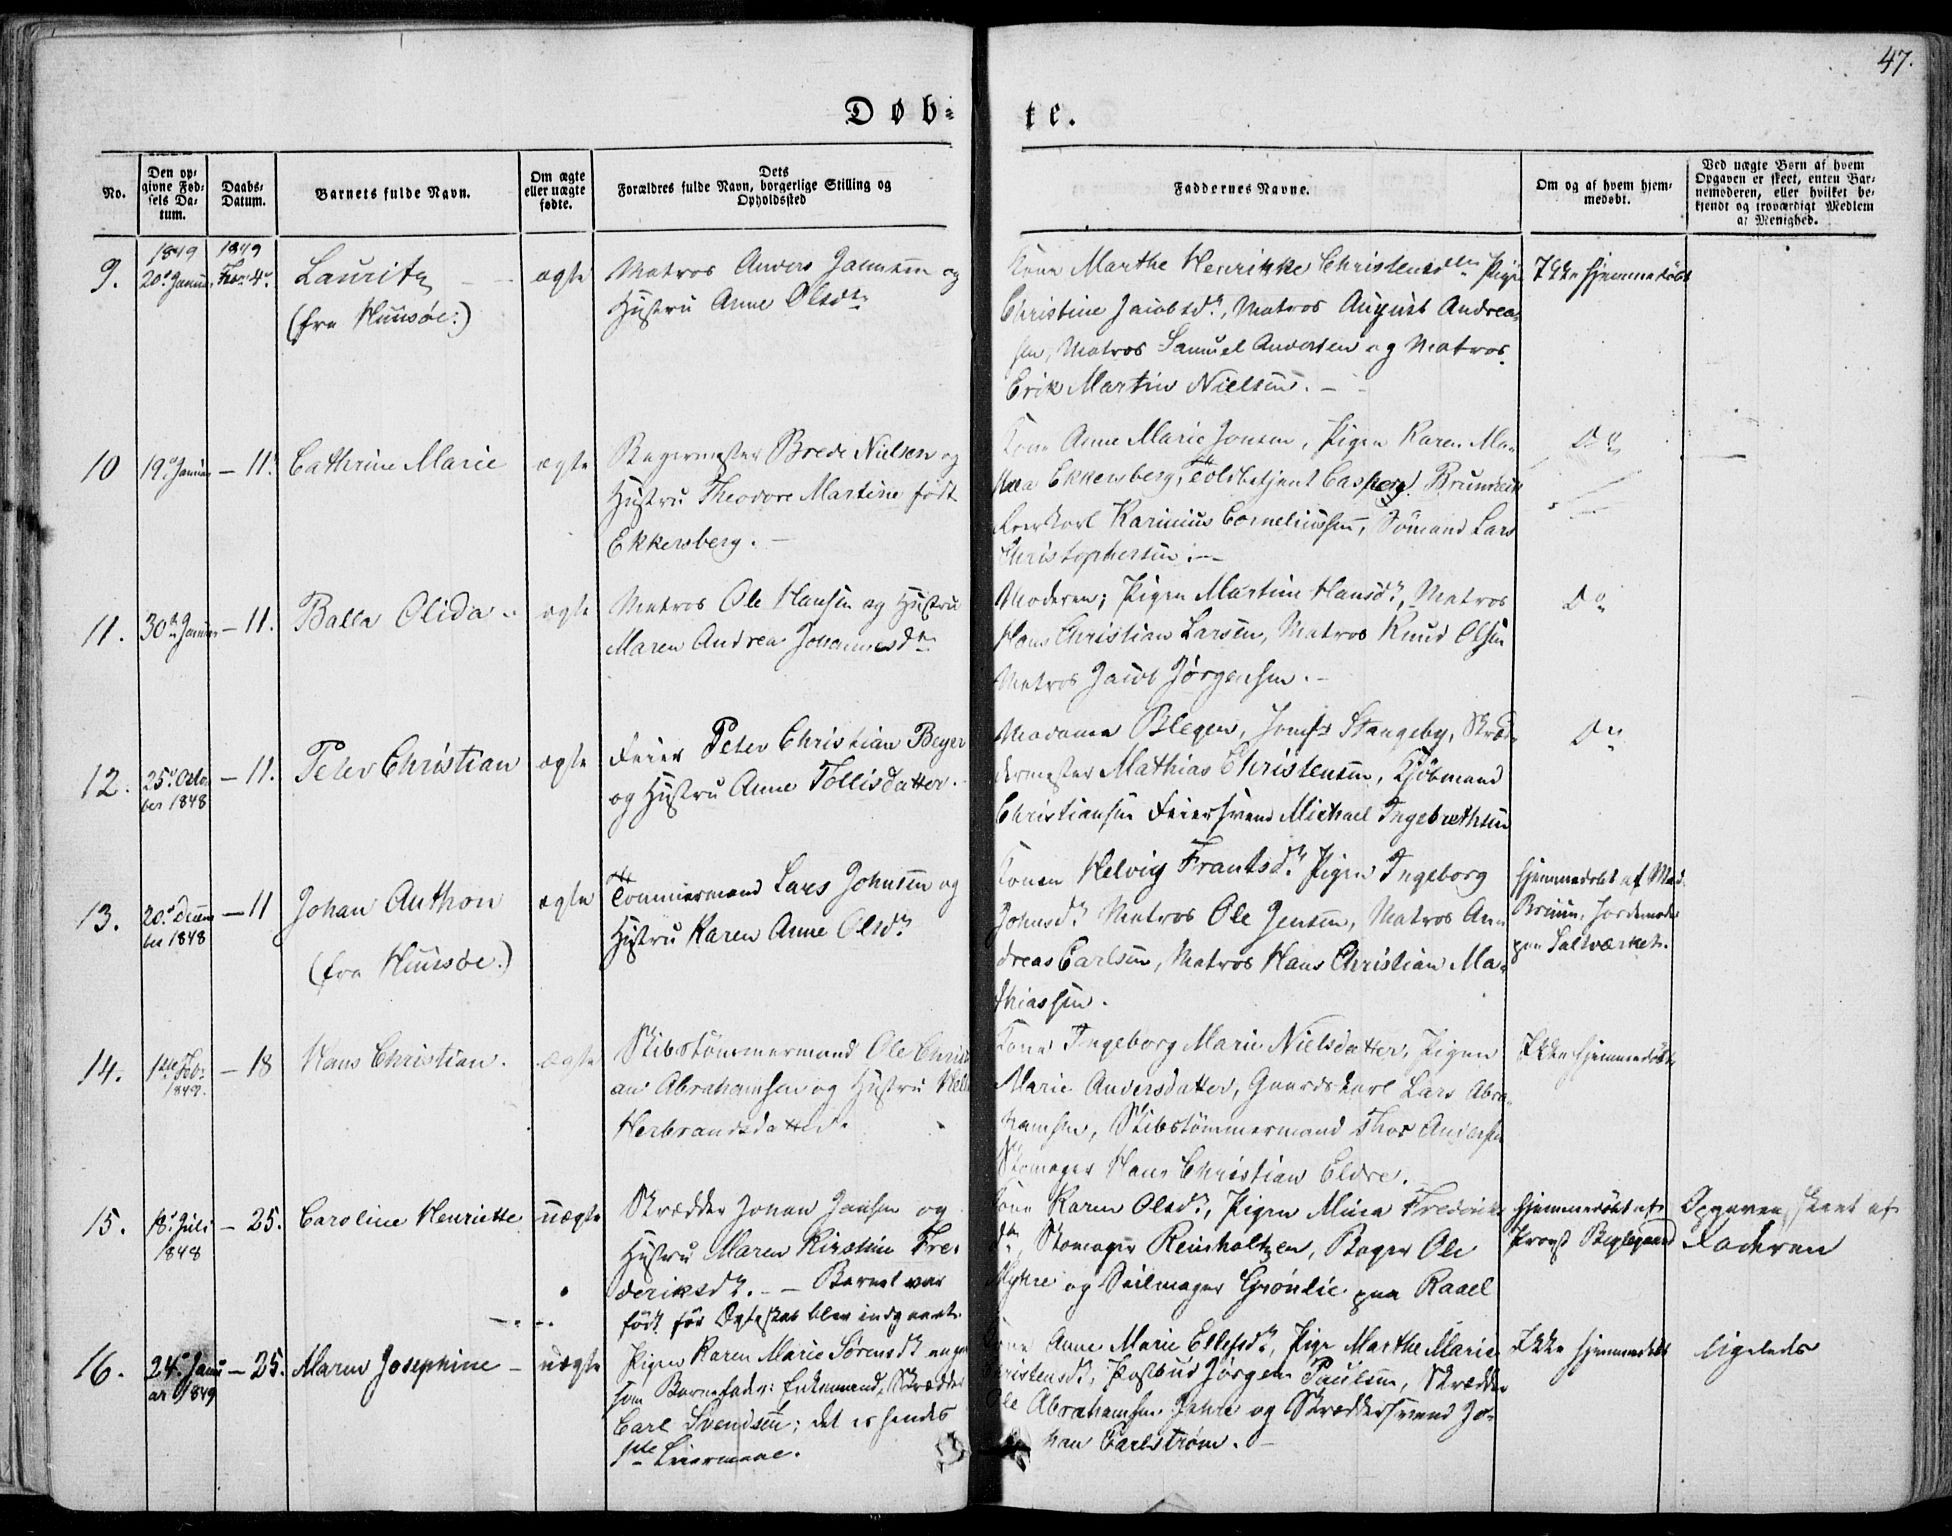 47.
Døb-
te.
No.
Den op-
givne Fød-
sels Da-
tum.
Daabs-
Datum.
Barnets fulde Navn.
Om ægte
eller uægte
fødte.
Dets
Forældres fulde Navn, borgerlige Stilling og
Opholdssted
Faddernes Navne.
Om og af hvem hjem-
medøbt.
Ved uægte Børn af hvem
Opgaven er skeet, enten Bar-
nemoderen, eller hvilket be-
kjendt og troværdigt Medlem
af Menighed.
1849
1849
9.
20de Januar
Febr. 4de
Lauritz
(fra Huusøe:)
ægte
Matros Anders Jannsen og
Hustru Anne Olsdtr
Kone Marthe Henrikke Christensdtr Pige
Christine Jacobsdr, Matros August Andrea-
sen, Matros Samuel Andersen og Matros
Erik Martin Nielsen. -
Ikke hjemmedøbt
10
19de Januar
- 11.
Cathrine Marie
ægte
Bagermester Brede Nielsen og
Hustru Theodore Martine født
Ekkersberg. -
Kone Anne Marie Jonsen, Pigen Karen Ma-
thea Ekkersberg, Toldbetjent Casperg Brun
Karinius Corneliussen, Sømand Lars
Christophersen. -
Do
11.
30te Januar
- 11.
Balla Olida -
ægte
Matros Ole Hansen og Hustru
Maren Andrea Johannesdtr
Moderen; Pigen Martine Hansdr, Matros
Hans Christian Larsen, Matros Knud Olsen
Matros Jacob Jørgensen. -
Do
12.
25de Octo-
ber 1848
- 11.
Peter Christian
ægte
Feier Peter Christian Beyer
og Hustru Anne Tollisdatter.
Madame Blegen, Jomfr Stangeby, Skræd-
dermester Mathias Christensen, Kjøbmand
Christiansen Feiersvend Michael Ingebrethsen
Do
13.
20de Decem-
ber 1848
- 11
Johan Anthon
(fra Huusøe.)
ægte
Tømmermand Lars Johnsen og
Hustru Karen Anne Olsdr
Konen Helvig Frantsdr Pigen Ingeborg
Johnsdr Matros Ole Jensen, Matros An-
dreas Carlsen, Matros Hans Christian Ma-
thiassen.
Hjemmedøbt af Mad.
Bruun, Jordemoder
paa Saltværket.
14.
1ste Feb.
1849.
- 18
Hans Christian.
ægte
Skibstømmermand Ole Christi
an Abrahamsen og Hustru
Herbrandsdatter.
Kone Ingeborg Marie Nielsdatter, Pigen
Marie Andersdatter, Gaardskarl Lars Abra-
hamsen, Skibstømmermand Thor Andersen
Skomager Hans Christian Eldre.
Ikke hjemmedøbt
15.
18de Juli
1848
- 25.
Caroline Henriette
uægte
Skrædder Johan Jansen og
Hustru Maren Kirstine Fre-
deriksdr. - - Barnet var
født før Ægteskab blev indgaaet.
Kone Karen Olsdr, Pigen Mina Frederiks
dtr, Skomager Reinholtzen, Bager Ole
Myhre og Seilmager Grønlie paa Raael
Hjemmedøbt af
Provst Beglegaard
Opgaven skeet af
Faderen
16.
24de Janu
ar 1849
- 25.
Maren Josephine -
uægte
Pigen Karen Marie Sørensdr angav
som Barnefader: Enkemand, Skrædder
Carl Svendsen; det er hendes
1ste Leiermaal.
Kone Anne Marie Ellefsdr, Pige Marthe Marie
Christensdr, Postbud Jørgen Paulsen, Skrædder
Ole Abrahamsen Jahre og Skræddersvend Jo-
han Carlstrøm. -
Ikke hjemmedøbt
ligeledes